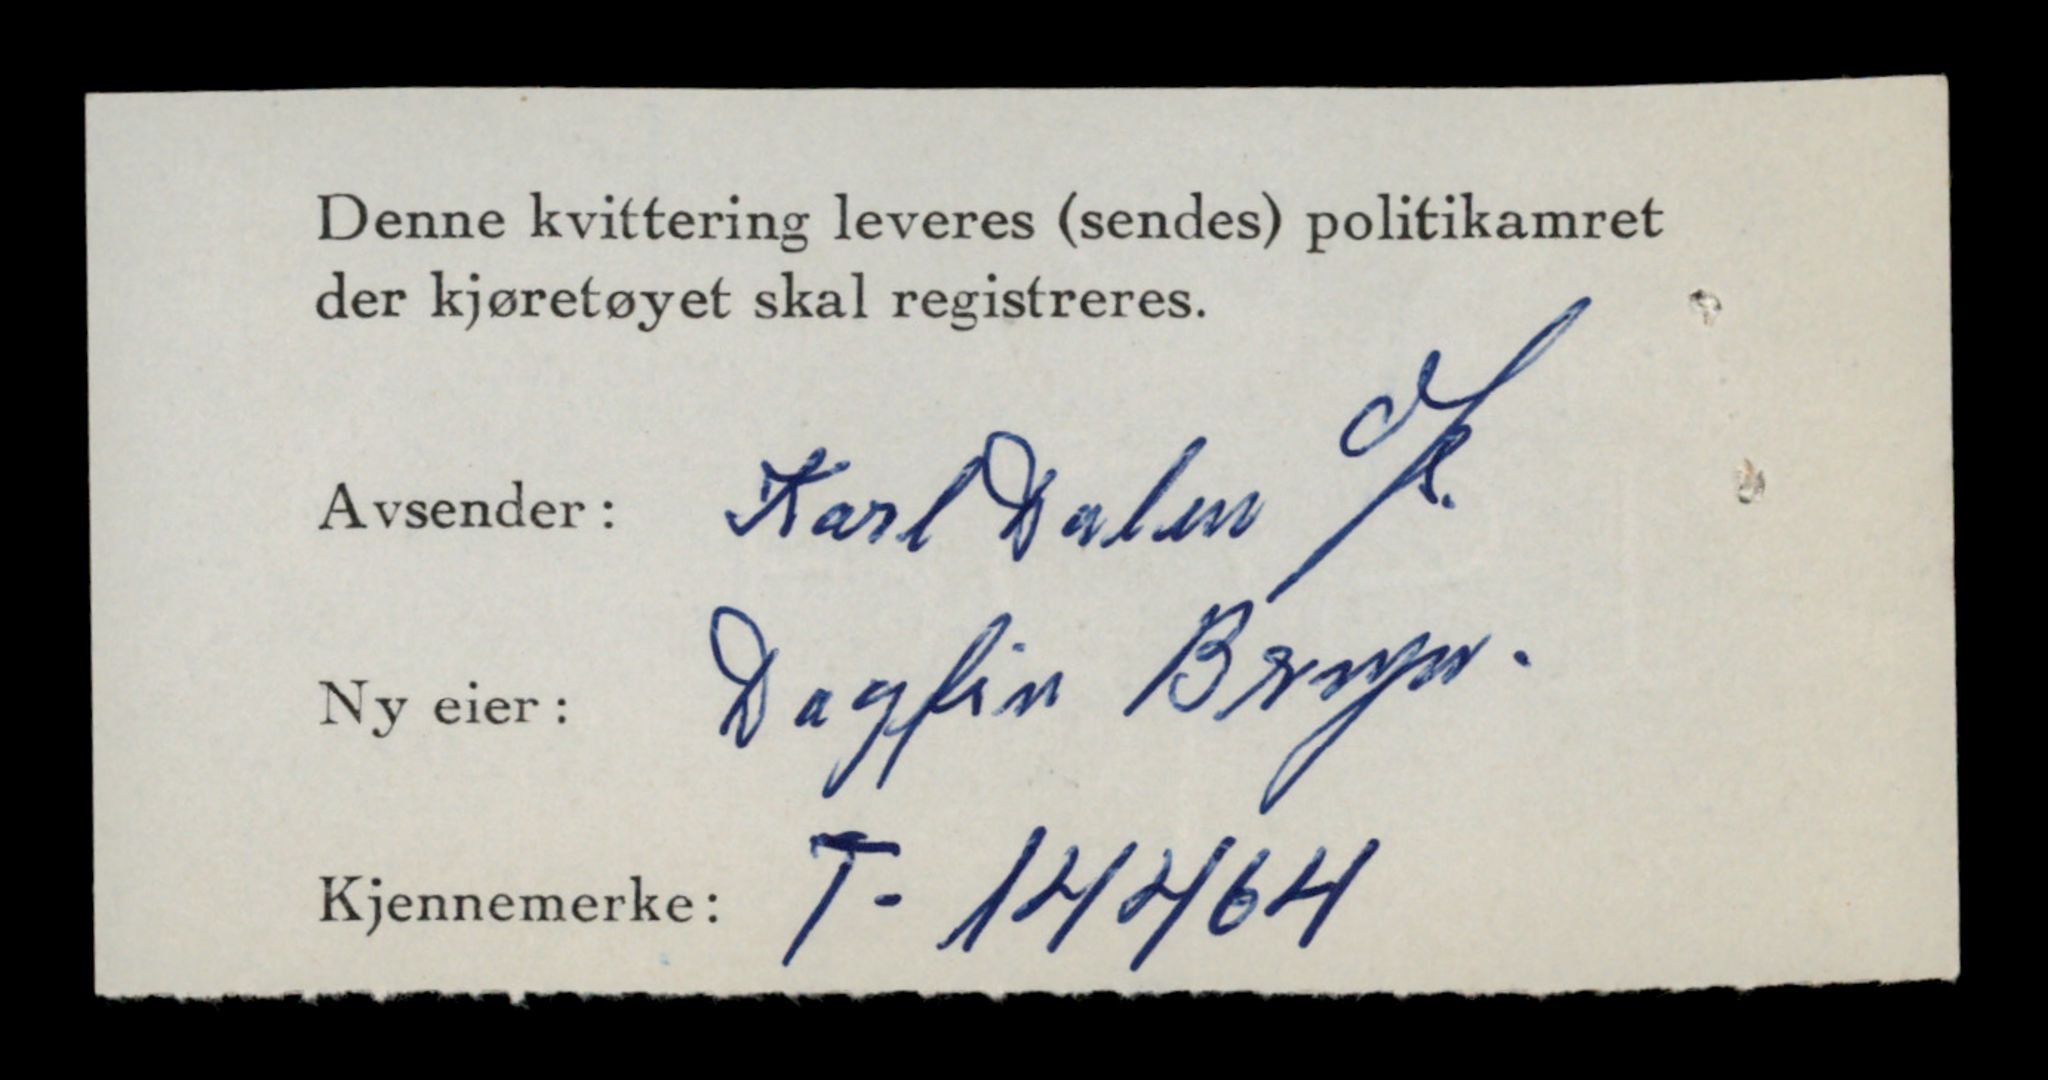 Denne kvittering leveres (sendes) politikamret
der kjøretøyet skal registreres.
Avsender: Karl Dalen
Ny eier: Dagfin Bryn.
Kjennemerke: T- 14464